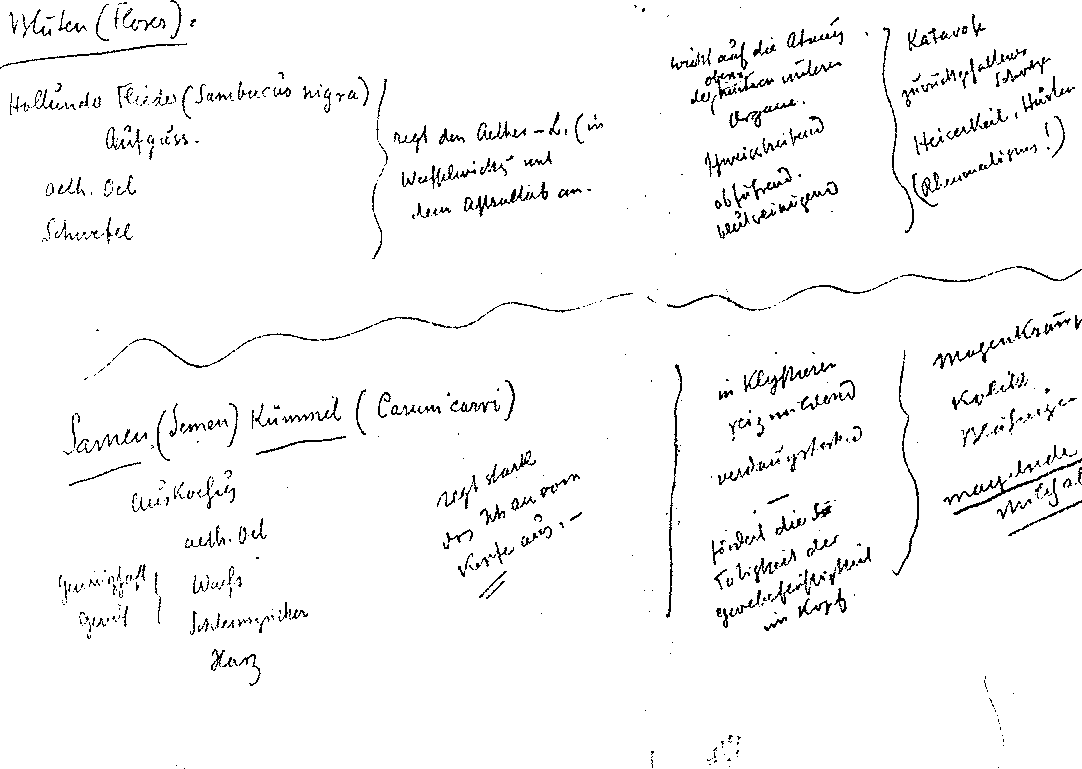 Blüten (Flores).
Hollunder Flieder (Sambucus nigra)
Aufguss.
aeth. Oel
Schwefel
regt den Aether-L. (in
Wechselwirkg mit
dem Astralleib an.
wirkt auf die Atmung
obere
unteren
Organe.
schweisstreibend
abführend.
blutreinigend
Katarrh
zurückgefallene
Heiserkeit, Husten
(Rheumatismus!)
Samen (Semen) Kümmel (Carum carvi)
Auskochung
aeth. Oel
Wachs
Schleimzucker
Harz
regt stark
das Ich an vom
Kopfe aus.-
in Klystieren
reizmildernd
verdauungsstärkend
fördert die
Tätigkeit der
im Kopf.
Magenkräm
Kolik
Blähungen
mangelnde
Milchab